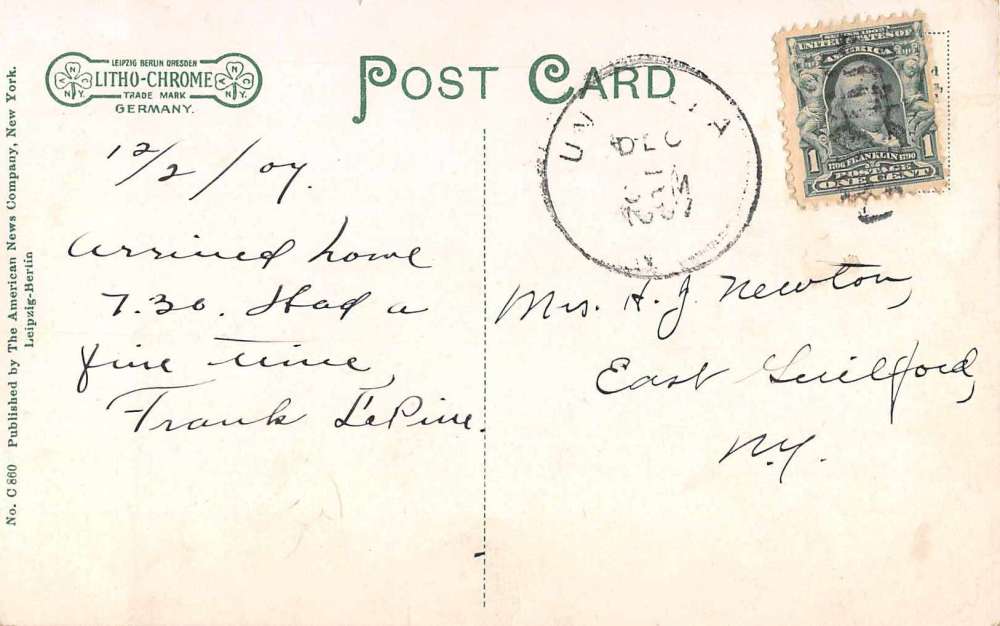 No. C 860 Published by The American News Company, New York.
Leipzig-Berlin
LEIPZIG BERLIN DRESDEN
LITHO-CHROME
TRADE MARK
GERMANY.
POST CARD
DEC
SERIES 1902
UNITED STATES OF
AMERICA
1 1706 FRANKLIN 1790 1
POSTAGE
ONE CENT
12/2/07.
Arrived home
7.30. Had a
fine time,
Frank LePine.
Mrs. H. J. Newton,
East Guilford,
N.Y.